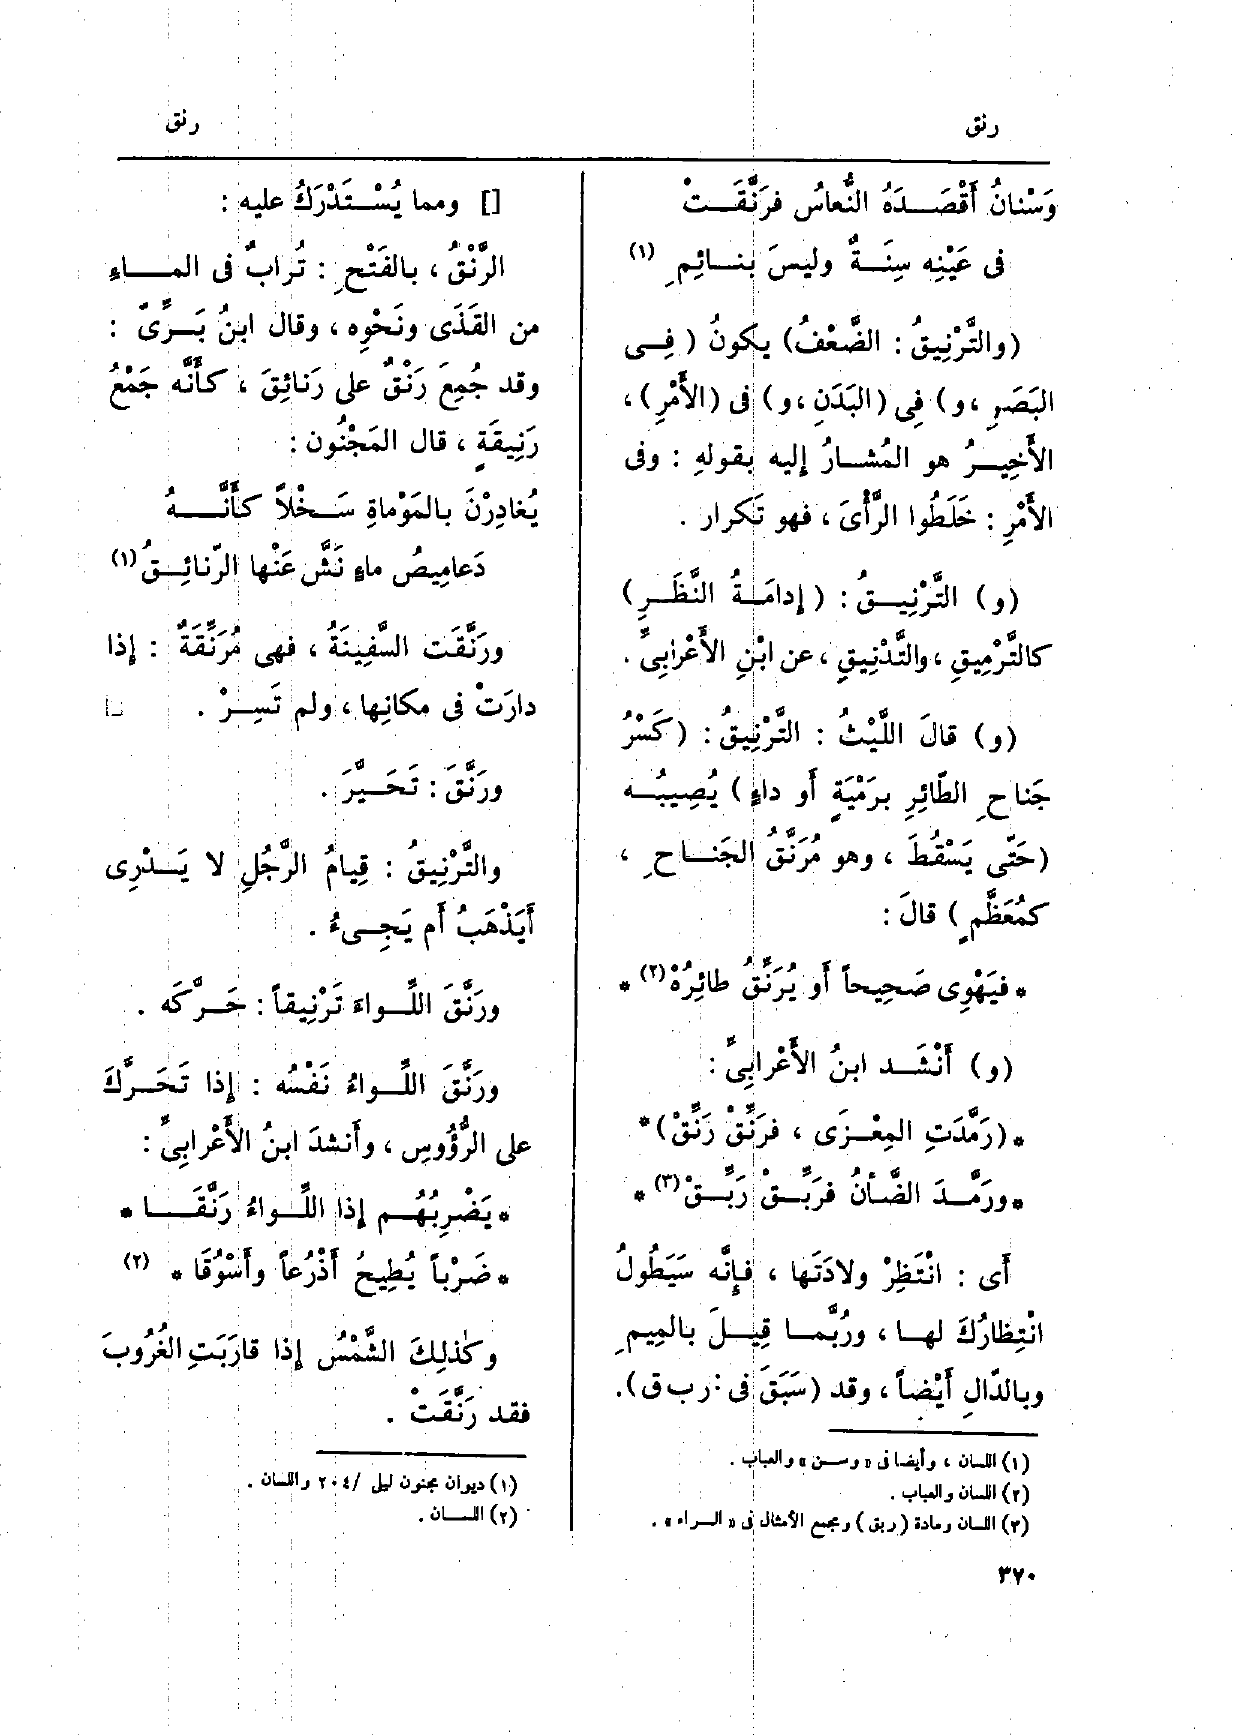 رنق
رنق
وَسْنانُ أَقْصَــدَهُ النُّعاسُ فرَنَّقَــتْ
فى عَيْنِه سِنَــةٌ وليسَ بِنــائِمِ (١)
(والتَّرْنِيقُ : الضَّعْفُ) يكونُ ( فِــى
البَصَرِ ، و) فِى (البَدَنِ ، و) فى (الأَمْرِ) ،
الأَخِيــرُ هو المُشــارُ إليه بقولهِ : وفى
الأَمْرِ : خَلَطُوا الرَّأْىَ ، فهو تَكرار .
(و) التَّرْنِيــقُ : ( إدامَــةُ النَّظَــرِ )
كالتَّرْمِيقِ ، والتَّدْنِيقِ ، عن ابْنِ الأَعْرابِىِّ .
(و) قالَ اللَّيْثُ : التَّرْنِيقُ : ( كَسْرُ
جَناحِ الطّائِرِ برَمْيَةٍ أو داءٍ ) يُصِيبُــه
(حَتّى يَسْقُطَ ، وهو مُرَنَّقُ الجَنــاحِ ،
كمُعَظَّمٍ ) قالَ :
* فيَهْوِى صَحِيحاً أو يُرَنِّقُ طائِرُهْ (٢) *
(و) أَنْشَــد ابنُ الأَعْرابِىِّ :
* (رَمَّدَتِ المِعْــزَى ، فرَنِّقْ رَنِّقْ) *
* ورَمَّــدَ الضَّأْنُ فرَبِّــقْ رَبِّــقْ (٣) *
أَى : انْتَظِرْ وِلادَتَها ، فإِنَّه سَيَطُولُ
انْتِظارُكَ لهــا ، ورُبَّمــا قِيــلَ بالمِيمِ
وبالدّالِ أَيْضاً ، وقد (سَبَقَ فى : ر ب ق) .
(١) اللسان ، وأيضا فى « وسن » والعباب .
(٢) اللسان والعباب .
(٣) اللسان ومادة (ربق) ومجمع الأمثال فى « الــراء » .
[] ومما يُسْــتَدْرَكُ عليه :
الرَّنْقُ ، بالفَتْحِ : تُرابٌ فى المــاءِ
من القَذَى ونَحْوِه ، وقال ابنُ بَــرِّىّ :
وقد جُمِعَ رَنْقٌ على رَنائِقَ ، كأَنَّه جَمْعُ
رَنِيقَةٍ ، قال المَجْنُون :
يُغادِرْنَ بالمَوْماةِ سَــخْلاً كأَنَّــهُ
دَعامِيصُ ماءٍ نَشَّ عَنْها الرّنائِــقُ (١)
ورَنَّقَت السَّفِينَةُ ، فهى مُرَنِّقَةٌ : إذا
دارَتْ فى مكانِها ، ولم تَسِــرْ .
ورَنَّقَ : تَحَــيَّرَ .
والتَّرْنِيقُ : قِيامُ الرَّجُلِ لا يَــدْرِى
أَيَذْهَبُ أم يَجِــىءُ .
ورَنَّقَ اللِّــواءَ تَرْنِيقاً : حَــرَّكَه .
ورَنَّقَ اللِّــواءُ نَفْسُه : إذا تَحَــرَّكَ
على الرُّؤُوسِ ، وأَنشدَ ابنُ الأَعْرابِىِّ :
* يَضْرِبُهُــم إذا اللِّــواءُ رَنَّقَــا *
* ضَرْباً يُطِيحُ أَذْرُعاً وأَسْوُقَا * (٢)
وكذٰلِكَ الشَّمْسُ إذا قارَبَتِ الغُرُوبَ
فقد رَنَّقَتْ .
(١) ديوان مجنون ليل /٢٠٤ واللسان .
(٢) اللســان .
٣٧٠